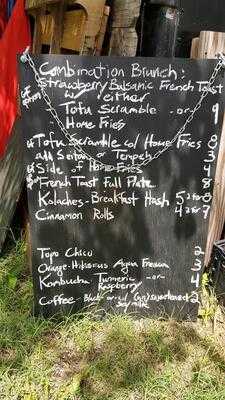 Combination Brunch:
Strawberry Balsamic French Toast
w/ either
Tofu Scramble -or- 9
Home Fries
Tofu Scramble w/ Home Fries 8
add Seitan or Tempeh 3
Side of Home Fries 4
French Toast Full Plate 8
Kolaches - Breakfast Hash 5 2 for 8
Cinnamon Rolls 4 2 for 7
Topo Chico 2
Orange-Hibiscus Agua Fresca 3
Kombucha - Turmeric -or- 4
Raspberry
Coffee - Black or w/ sweetened 2
Soy milk